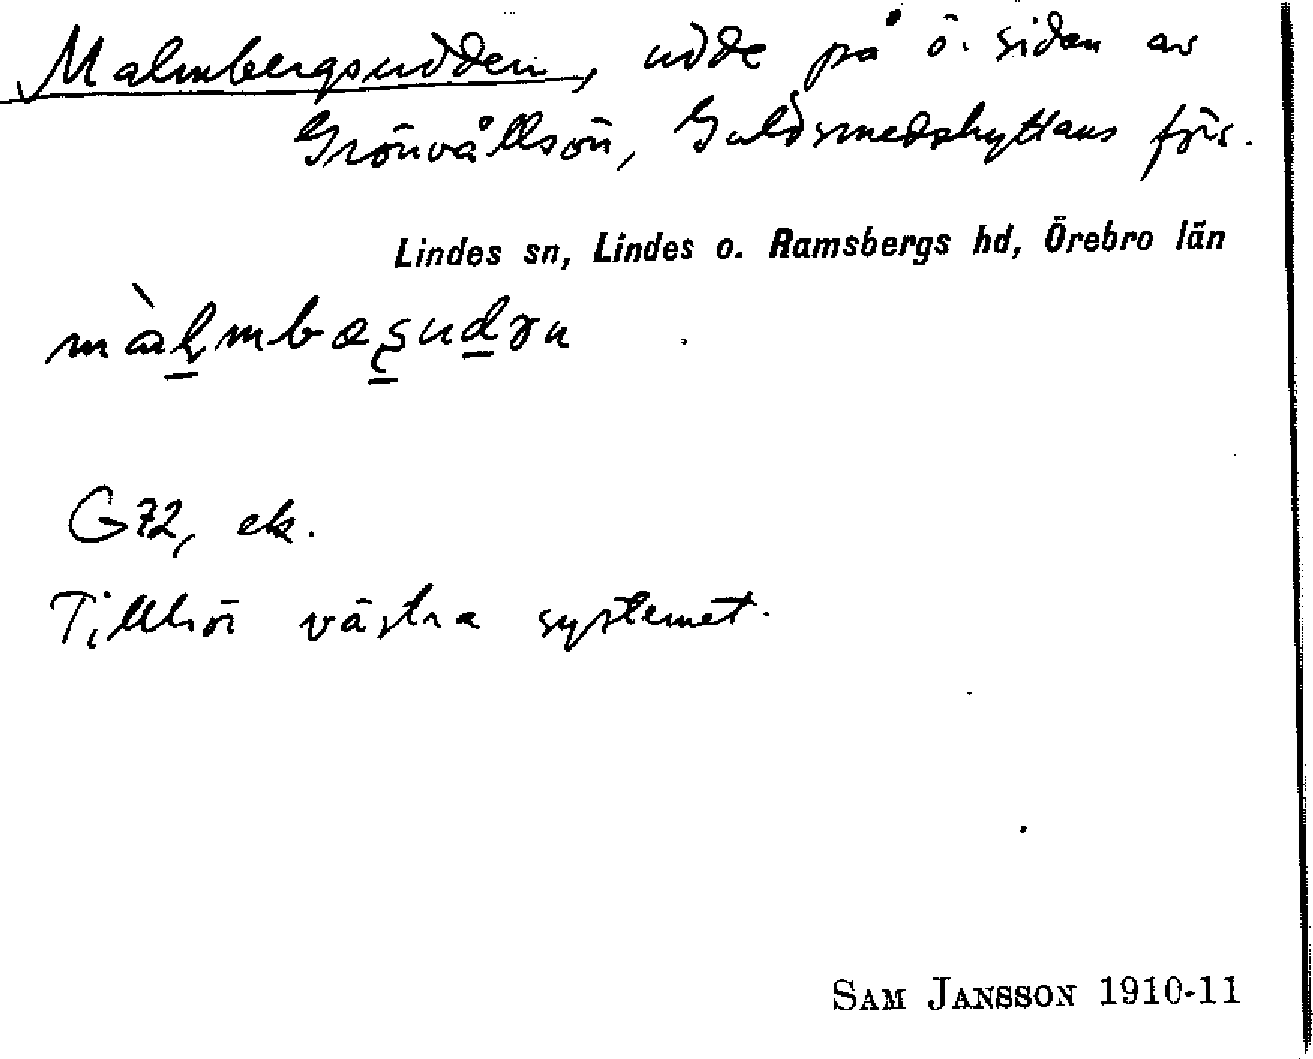 Malmbergsudden, udde på ö. sidan av
Grönvållsön, Guldsmedshyttans förs.
Lindes sn, Lindes o. Ramsbergs hd, Örebro län
G72, ek.
Tillhör västra systemet.
SAM JANSSON 1910-11